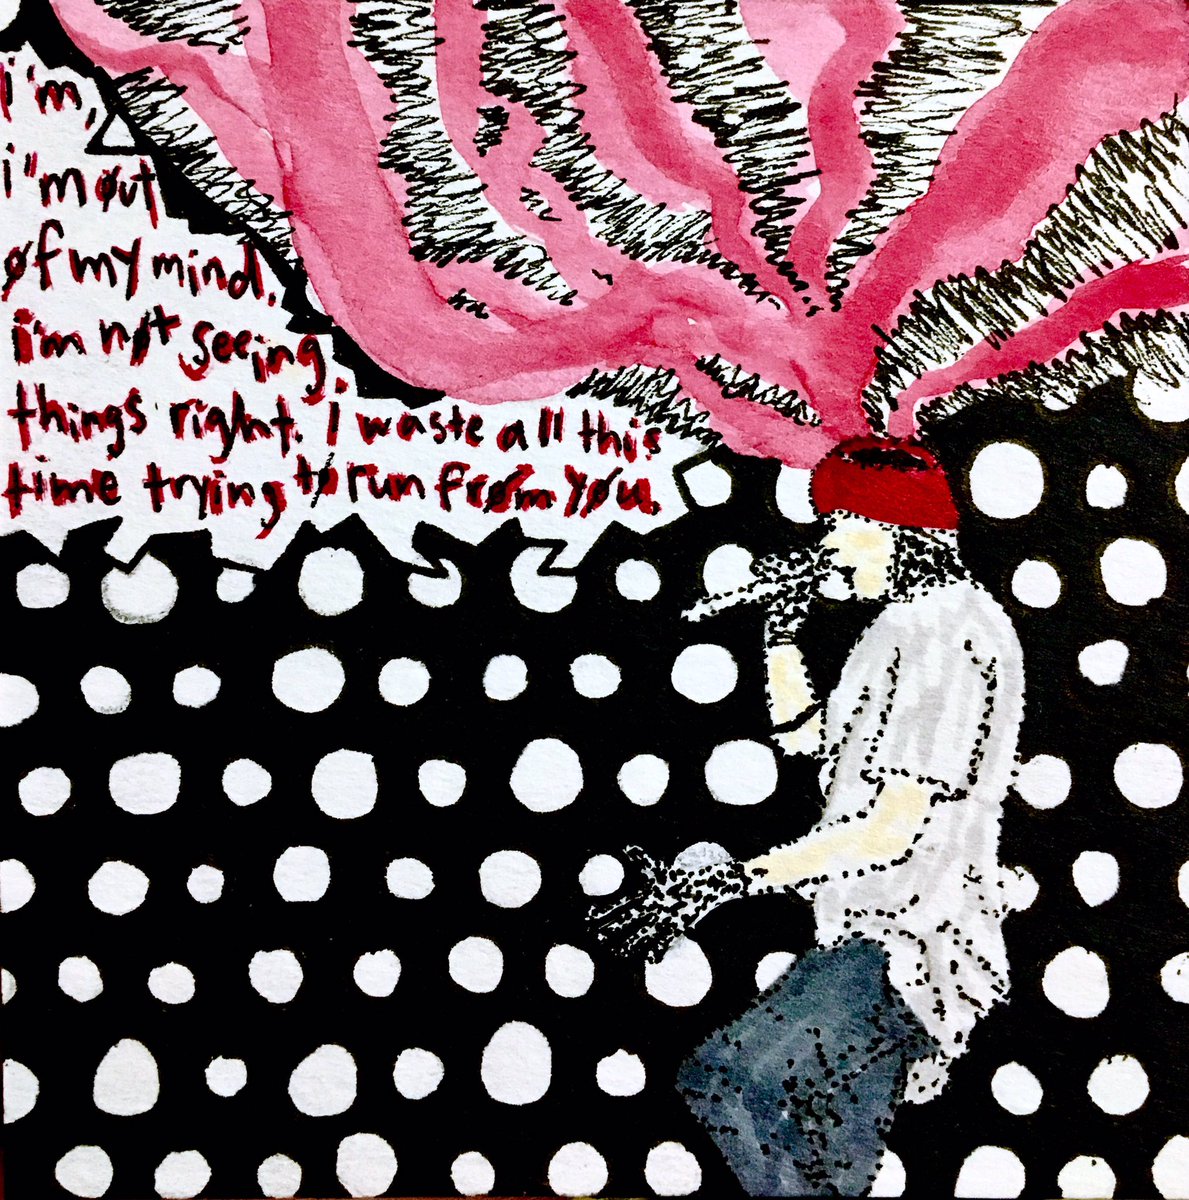 i'm,
i'm øut
øf my mind.
i'm nøt seeing
things right. I waste all this
time trying tø run frøm yøu.